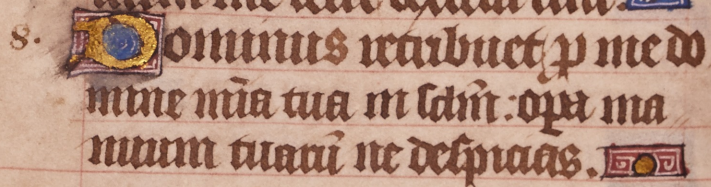 8. Dominus retribuet ꝑ me do
mine mīa tua in scłm̄: opa ma
nuum tuarū ne despicias.